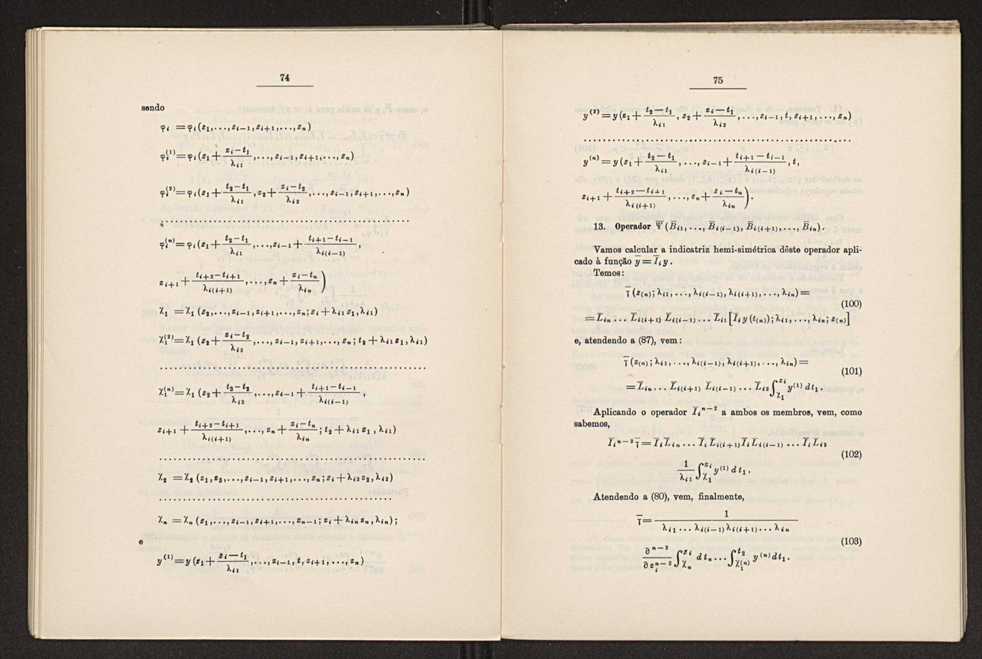 74
sendo
φi = φi (z1,..., zi−1, zi+1,..., zn)
φi(1) = φi (z1 + (zi − t1)/λi1 ,..., zi−1, zi+1,..., zn)
φi(2) = φi (z1 + (t2 − t1)/λi1 , z2 + (zi − t2)/λi2 ,..., zi−1, zi+1,..., zn)
........................................
φi(n) = φi (z1 + (t2 − t1)/λi1 ,..., zi−1 + (ti+1 − ti−1)/λi(i−1) ,
zi+1 + (ti+2 − ti+1)/λi(i+1) ,..., zn + (zi − tn)/λin )
χ1 = χ1 (z2,..., zi−1, zi+1,..., zn; zi + λi1 z1, λi1)
χ1(2) = χ1 (z2 + (zi − t2)/λi2 ,..., zi−1, zi+1,..., zn; t2 + λi1 z1, λi1)
........................................
χ1(n) = χ1 (z2 + (t3 − t2)/λi2 ,..., zi−1 + (ti+1 − ti−1)/λi(i−1) ,
zi+1 + (ti+2 − ti+1)/λi(i+1) ,..., zn + (zi − tn)/λin ; t2 + λi1 z1, λi1)
........................................
χ2 = χ2 (z1, z3,..., zi−1, zi+1,..., zn; zi + λi2 z2, λi2)
........................................
χn = χn (z1,..., zi−1, zi+1,..., zn−1; zi + λin zn, λin);
e
y(1) = y (z1 + (zi − t1)/λi1 ,..., zi−1, t, zi+1,..., zn)
75
y(2) = y (z1 + (t2 − t1)/λi1 , z2 + (zi − t2)/λi2 ,..., zi−1, t, zi+1,..., zn)
........................................
y(n) = y (z1 + (t2 − t1)/λi1 ,..., zi−1 + (ti+1 − ti−1)/λi(i−1) , t,
zi+1 + (ti+2 − ti+1)/λi(i+1) ,..., zn + (zi − tn)/λin ).
13. Operador Ψ̅ (B̅i1,..., B̅i(i−1), B̅i(i+1),..., B̅in).
Vamos calcular a indicatriz hemi-simétrica dêste operador apli-
cado à função y̅ = I̅i y.
Temos:
ı̅ (z(n); λi1,..., λi(i−1), λi(i+1),..., λin) =
(100)
= L̅in ... L̅i(i+1) L̅i(i−1) ... L̅i1 [I̅i y (t(n)); λi1,..., λin; z(n)]
e, atendendo a (87), vem:
ı̅ (z(n); λi1,..., λi(i−1), λi(i+1),..., λin) =
(101)
= L̅in ... L̅i(i+1) L̅i(i−1) ... L̅i2 ∫χ1^zi y(1) dt1.
Aplicando o operador I̅i^n−2 a ambos os membros, vem, como
sabemos,
I̅i^n−2 ı̅ = I̅i L̅in ... I̅i L̅i(i+1) I̅i L̅i(i−1) ... I̅i L̅i2
(102)
1/λi1 ∫χ1^zi y(1) dt1.
Atendendo a (80), vem, finalmente,
ı̅ = 1/(λi1 ... λi(i−1) λi(i+1) ... λin)
(103)
∂^n−2/∂zi^n−2 ∫χn^zi dtn ... ∫χ1(n)^t2 y(n) dt1.